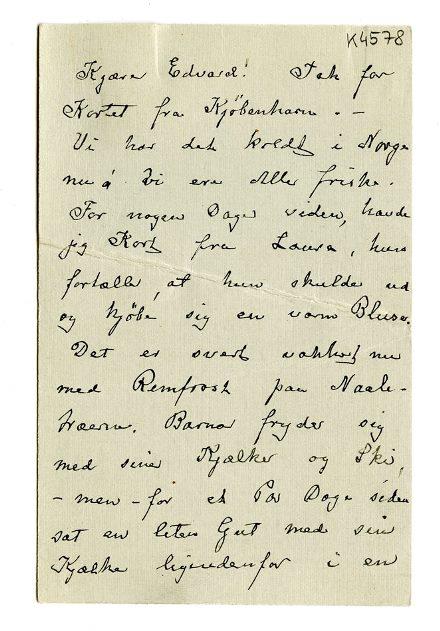 K4578
Kjære Edvard! Tak for
Kortet fra Kjöbenhavn. –
Vi har det koldt i Norge
nu á Vi ere Alle friske.
For nogen Dage siden, havde
jig Kort fra Laura, hun
fortæller, at hun skulde ud
og kjöbe sig en varm Bluse.
Det er svert vakkert nu
med Remfrost paa Naale-
træerne. Barna fryder sig
med sine Kjælker og Ski,
– men – for et Par Dage siden
sat en liten Gut med sin
Kjælke ligendenfor i en